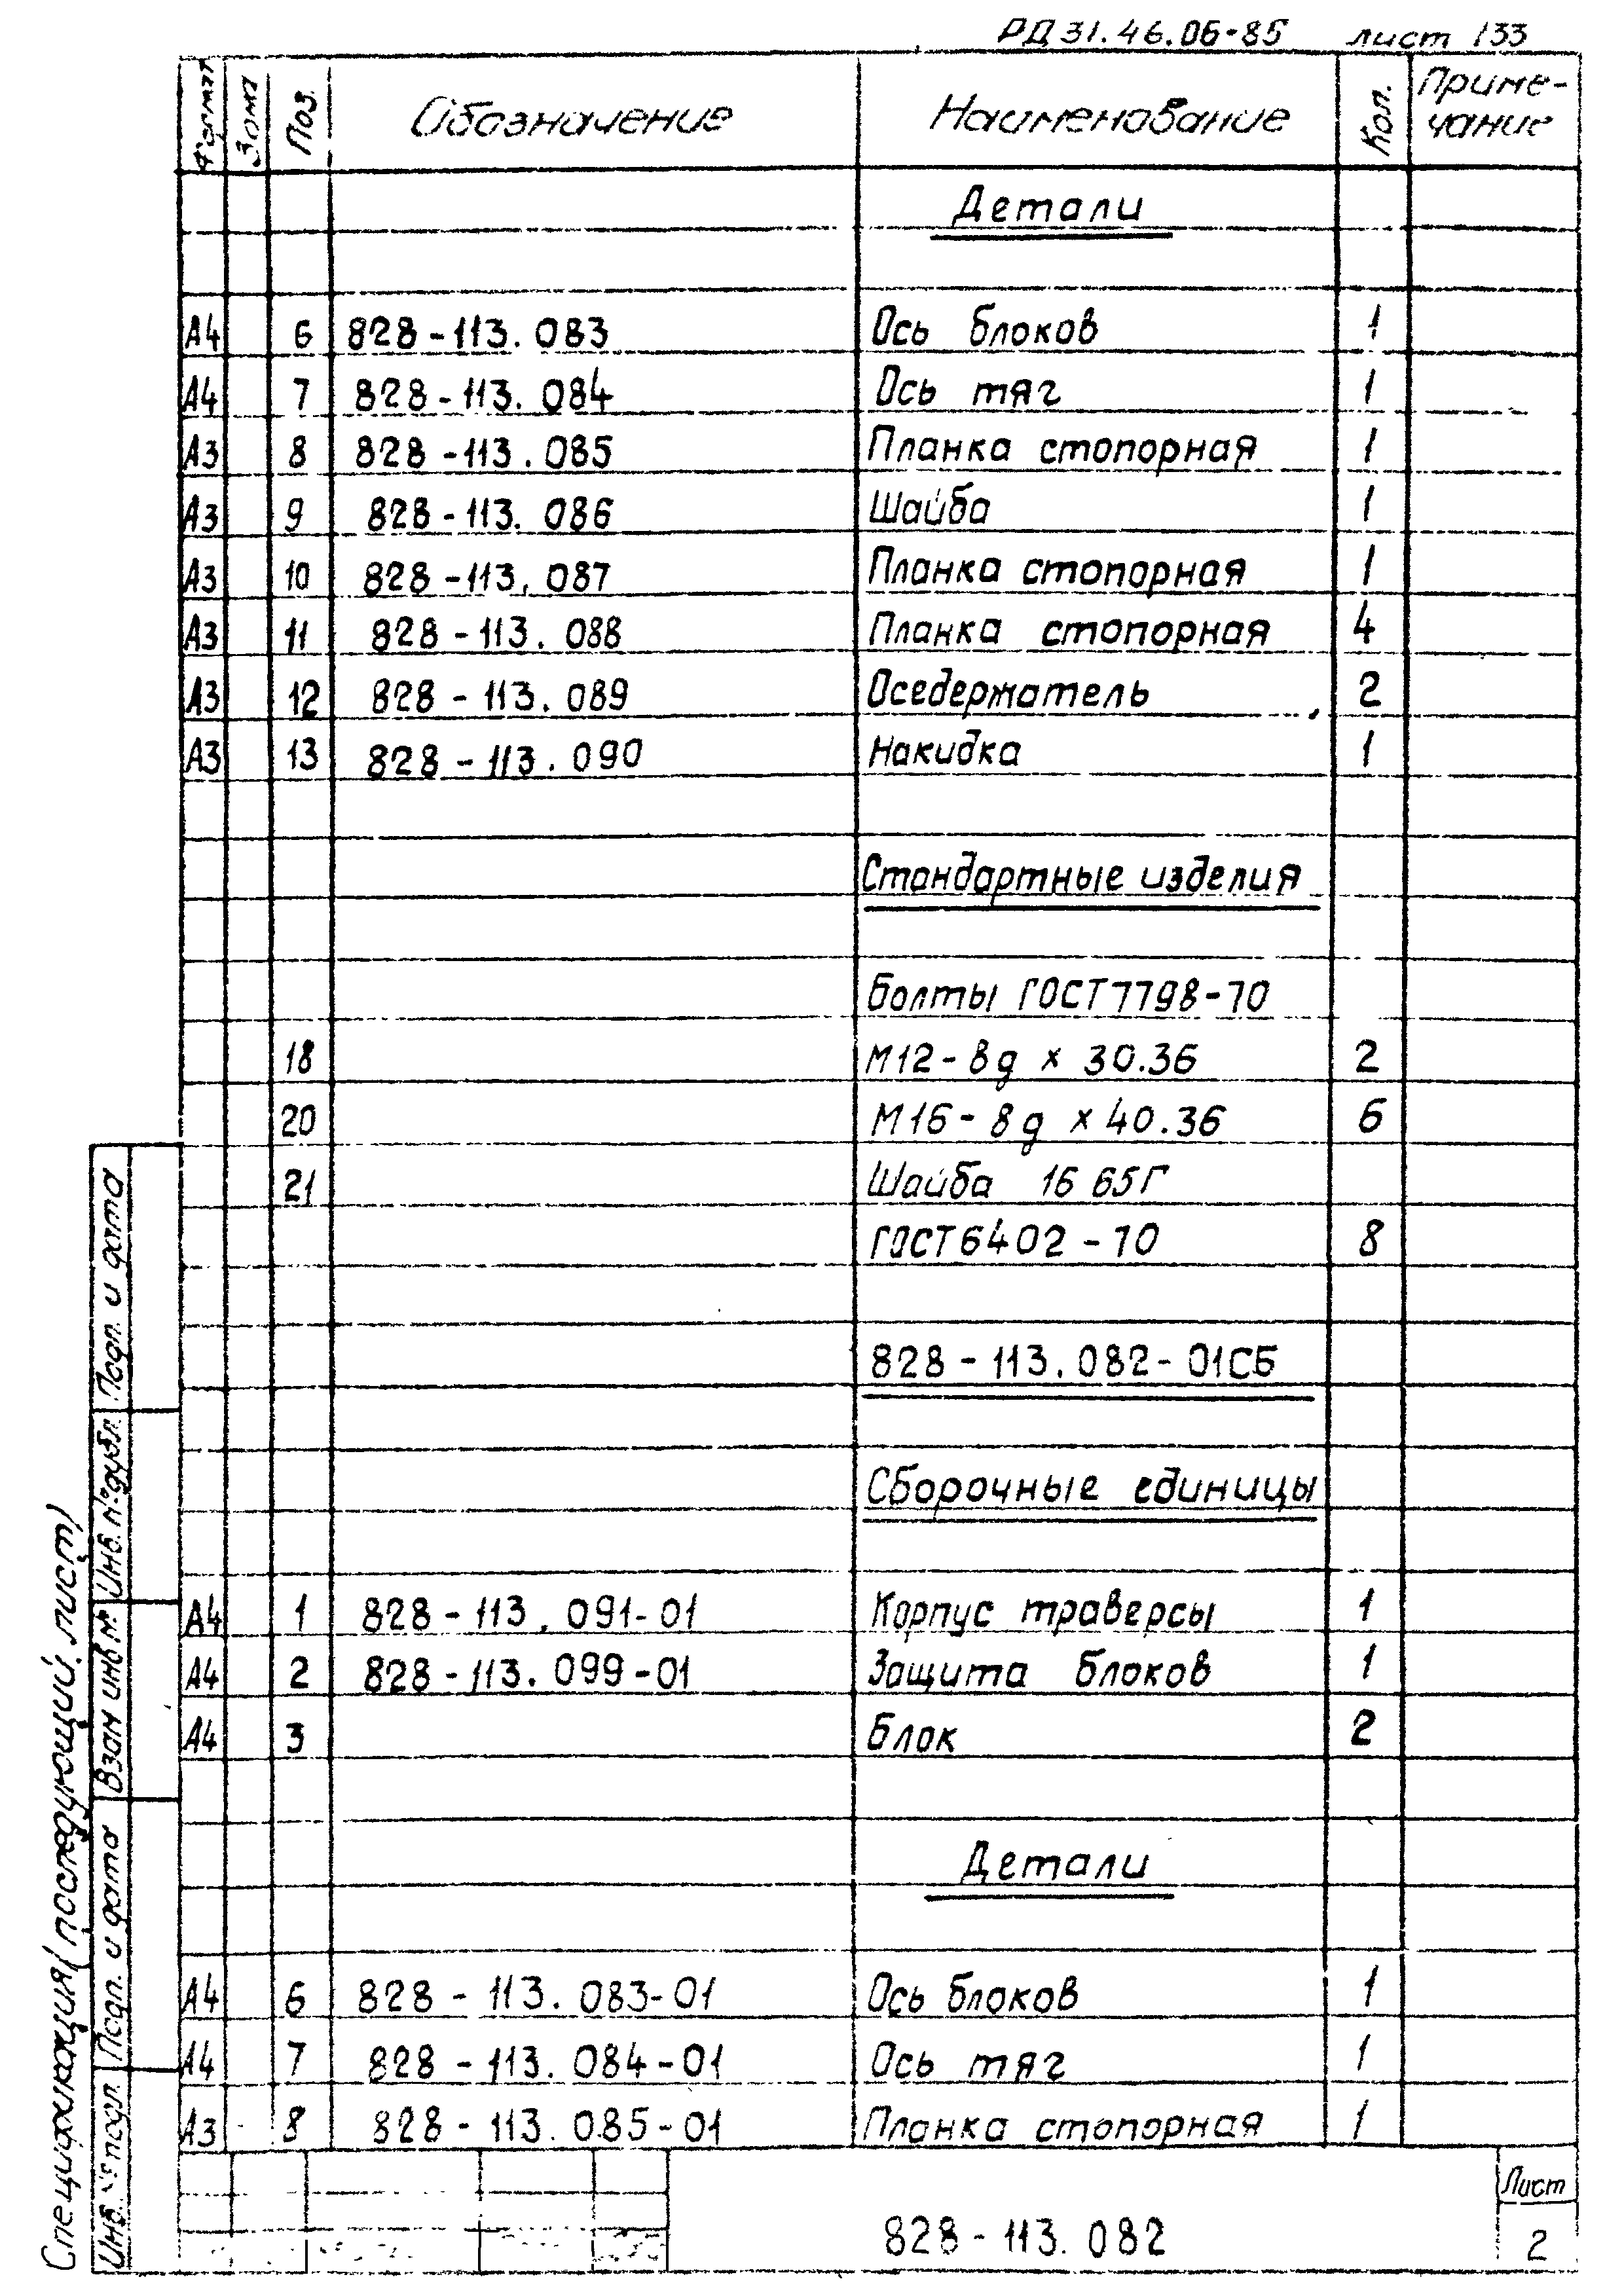 РД 31.46.06-85 лист 133
Формат Зона Поз. Обозначение Наименование Кол. Приме-
чание
Детали
А4 6 828-113.083 Ось блоков 1
А4 7 828-113.084 Ось тяг 1
А3 8 828-113.085 Планка стопорная 1
А3 9 828-113.086 Шайба 1
А3 10 828-113.087 Планка стопорная 1
А3 11 828-113.088 Планка стопорная 4
А3 12 828-113.089 Оседержатель 2
А3 13 828-113.090 Накидка 1
Стандартные изделия
Болты ГОСТ 7798-70
18 М12-8g х 30.36 2
20 М16-8g х 40.36 6
21 Шайба 16 65Г
ГОСТ 6402-70 8
828-113.082-01СБ
Сборочные единицы
А4 1 828-113.091-01 Корпус траверсы 1
А4 2 828-113.099-01 Защита блоков 1
А4 3 Блок 2
Детали
А4 6 828-113.083-01 Ось блоков 1
А4 7 828-113.084-01 Ось тяг 1
А3 8 828-113.085-01 Планка стопорная 1
828-113.082
Лист
2
Спецификация (последующий лист)
Инв. № подл. Подп. и дата Взам инв № Инв. № дубл. Подп. и дата